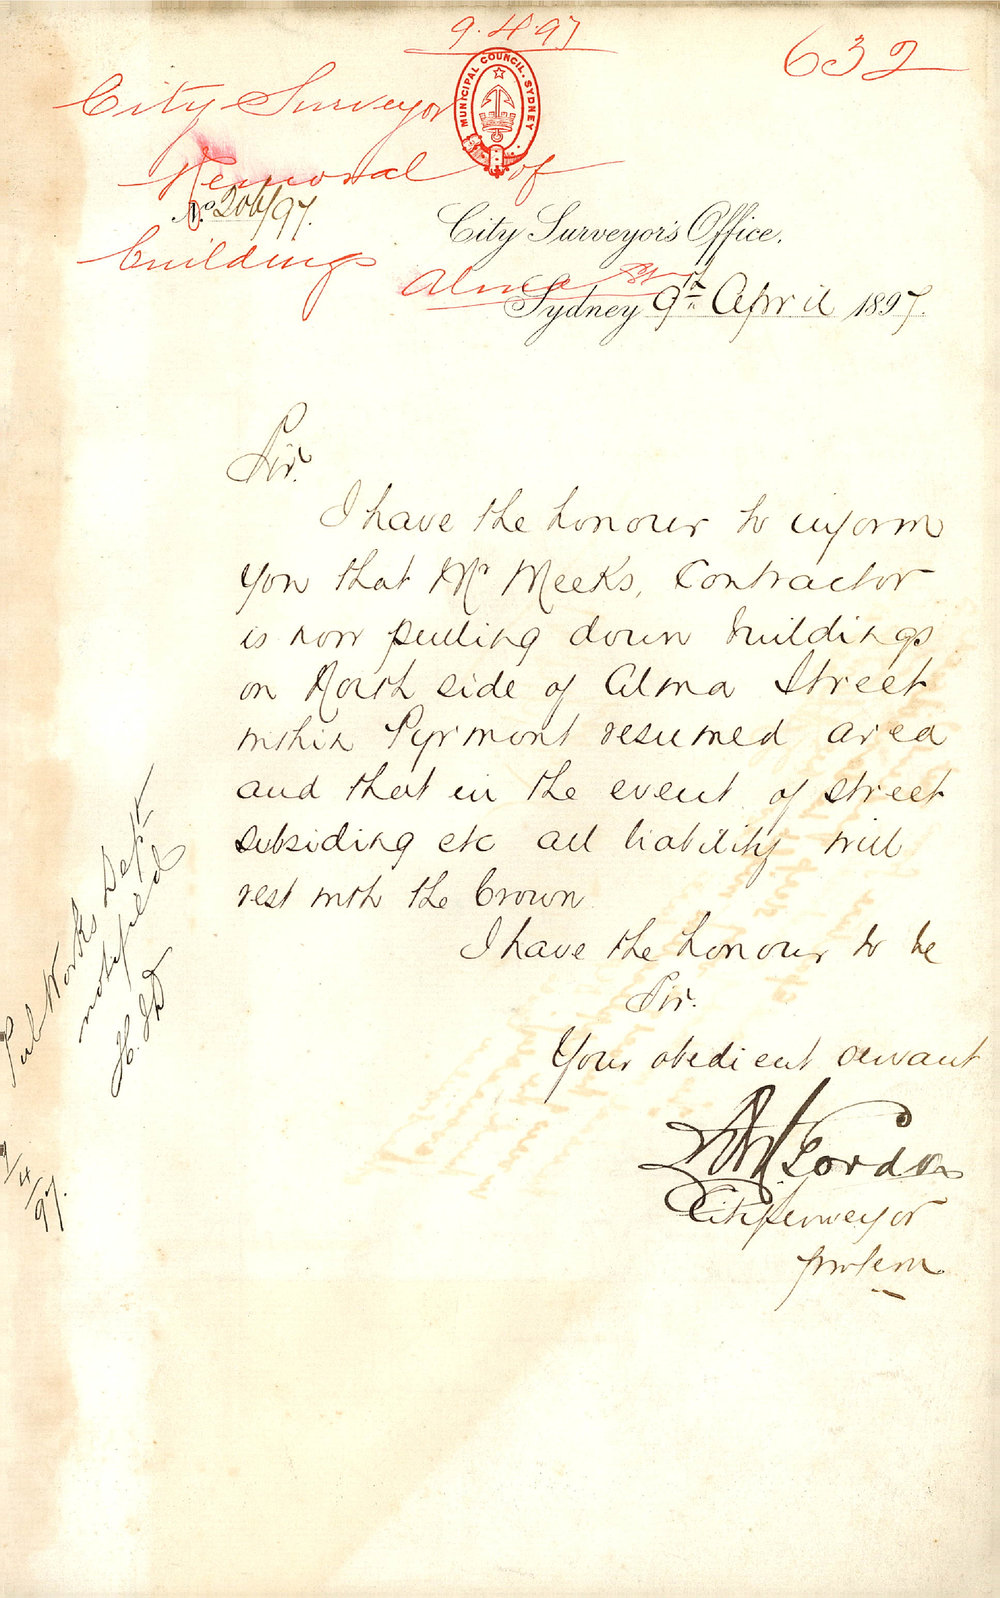 9.4.97
632
City Surveyor
MUNICIPAL COUNCIL. SYDNEY
Removal of
No. 206/97.
City Surveyor's Office,
buildings
Alma St
Sydney 9th April 1897.
Sir.
I have the honour to inform
you that Mr Meeks, Contractor
is now pulling down buildings
on North side of Alma Street
within Pyrmont resumed area
and that in the event of street
subsiding etc all liability will
rest with the Crown
I have the honour to be
Sir.
Your obedient servant
Gordon
City Surveyor
pro tem.
Pub Works Dept
notified
9/4/97.